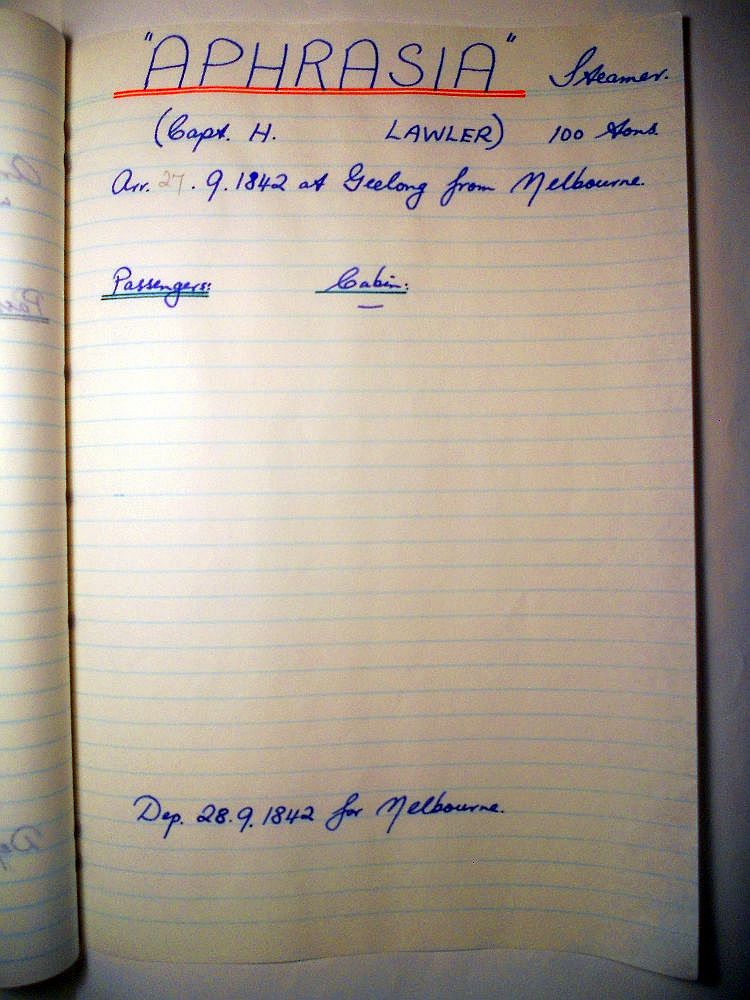 "APHRASIA" Steamer.
(Capt. H. LAWLER) 100 tons.
Arr. 27. 9. 1842 at Geelong from Melbourne.
Passengers: Cabin:
—
Dep. 28. 9. 1842 for Melbourne.